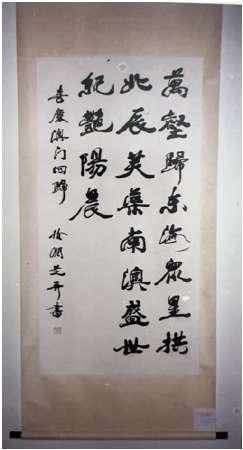 萬壑歸东海眾星拱
北辰芙蕖南澳盛世
紀豔陽晨
喜慶澳门回歸
并書